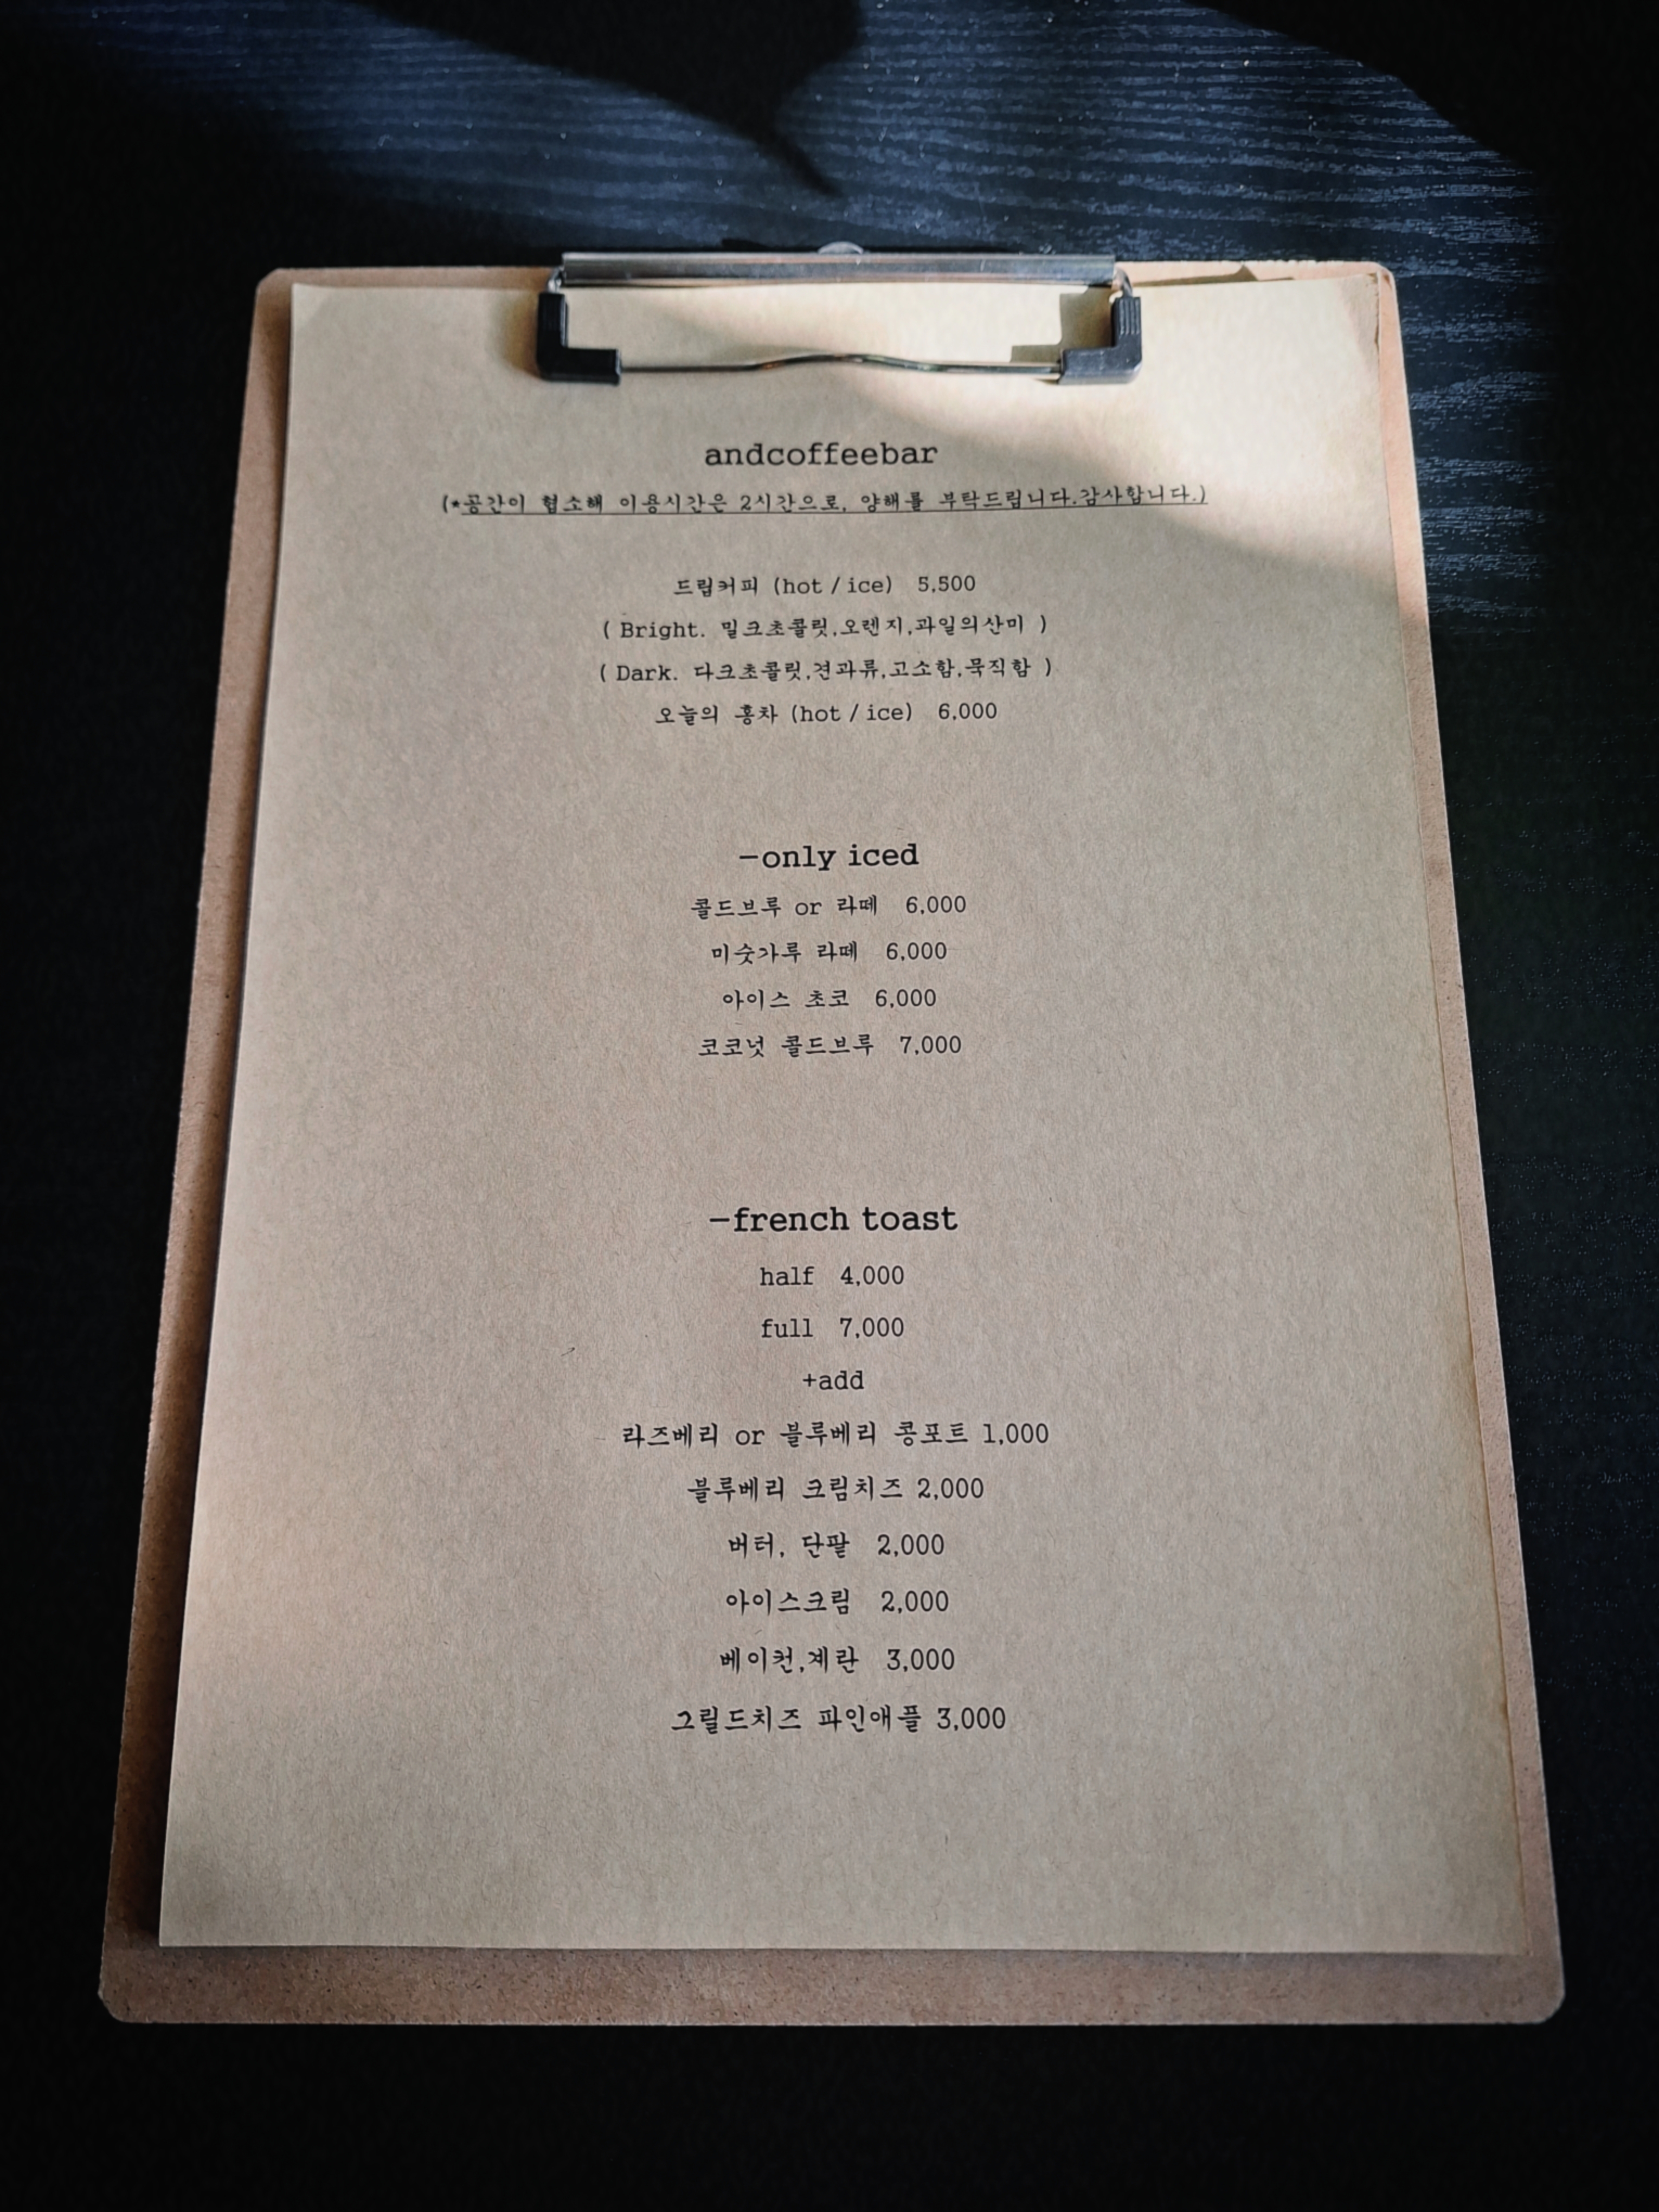 andcoffeebar
(*공간이 협소해 이용시간은 2시간으로, 양해를 부탁드립니다.감사합니다.)
드립커피 (hot / ice) 5,500
( Bright. 밀크초콜릿,오렌지,과일의산미 )
( Dark. 다크초콜릿,견과류,고소함,묵직함 )
오늘의 홍차 (hot / ice) 6,000
-only iced
콜드브루 or 라떼 6,000
미숫가루 라떼 6,000
아이스 초코 6,000
코코넛 콜드브루 7,000
-french toast
half 4,000
full 7,000
+add
라즈베리 or 블루베리 콩포트 1,000
블루베리 크림치즈 2,000
버터, 단팥 2,000
아이스크림 2,000
베이컨,계란 3,000
그릴드치즈 파인애플 3,000